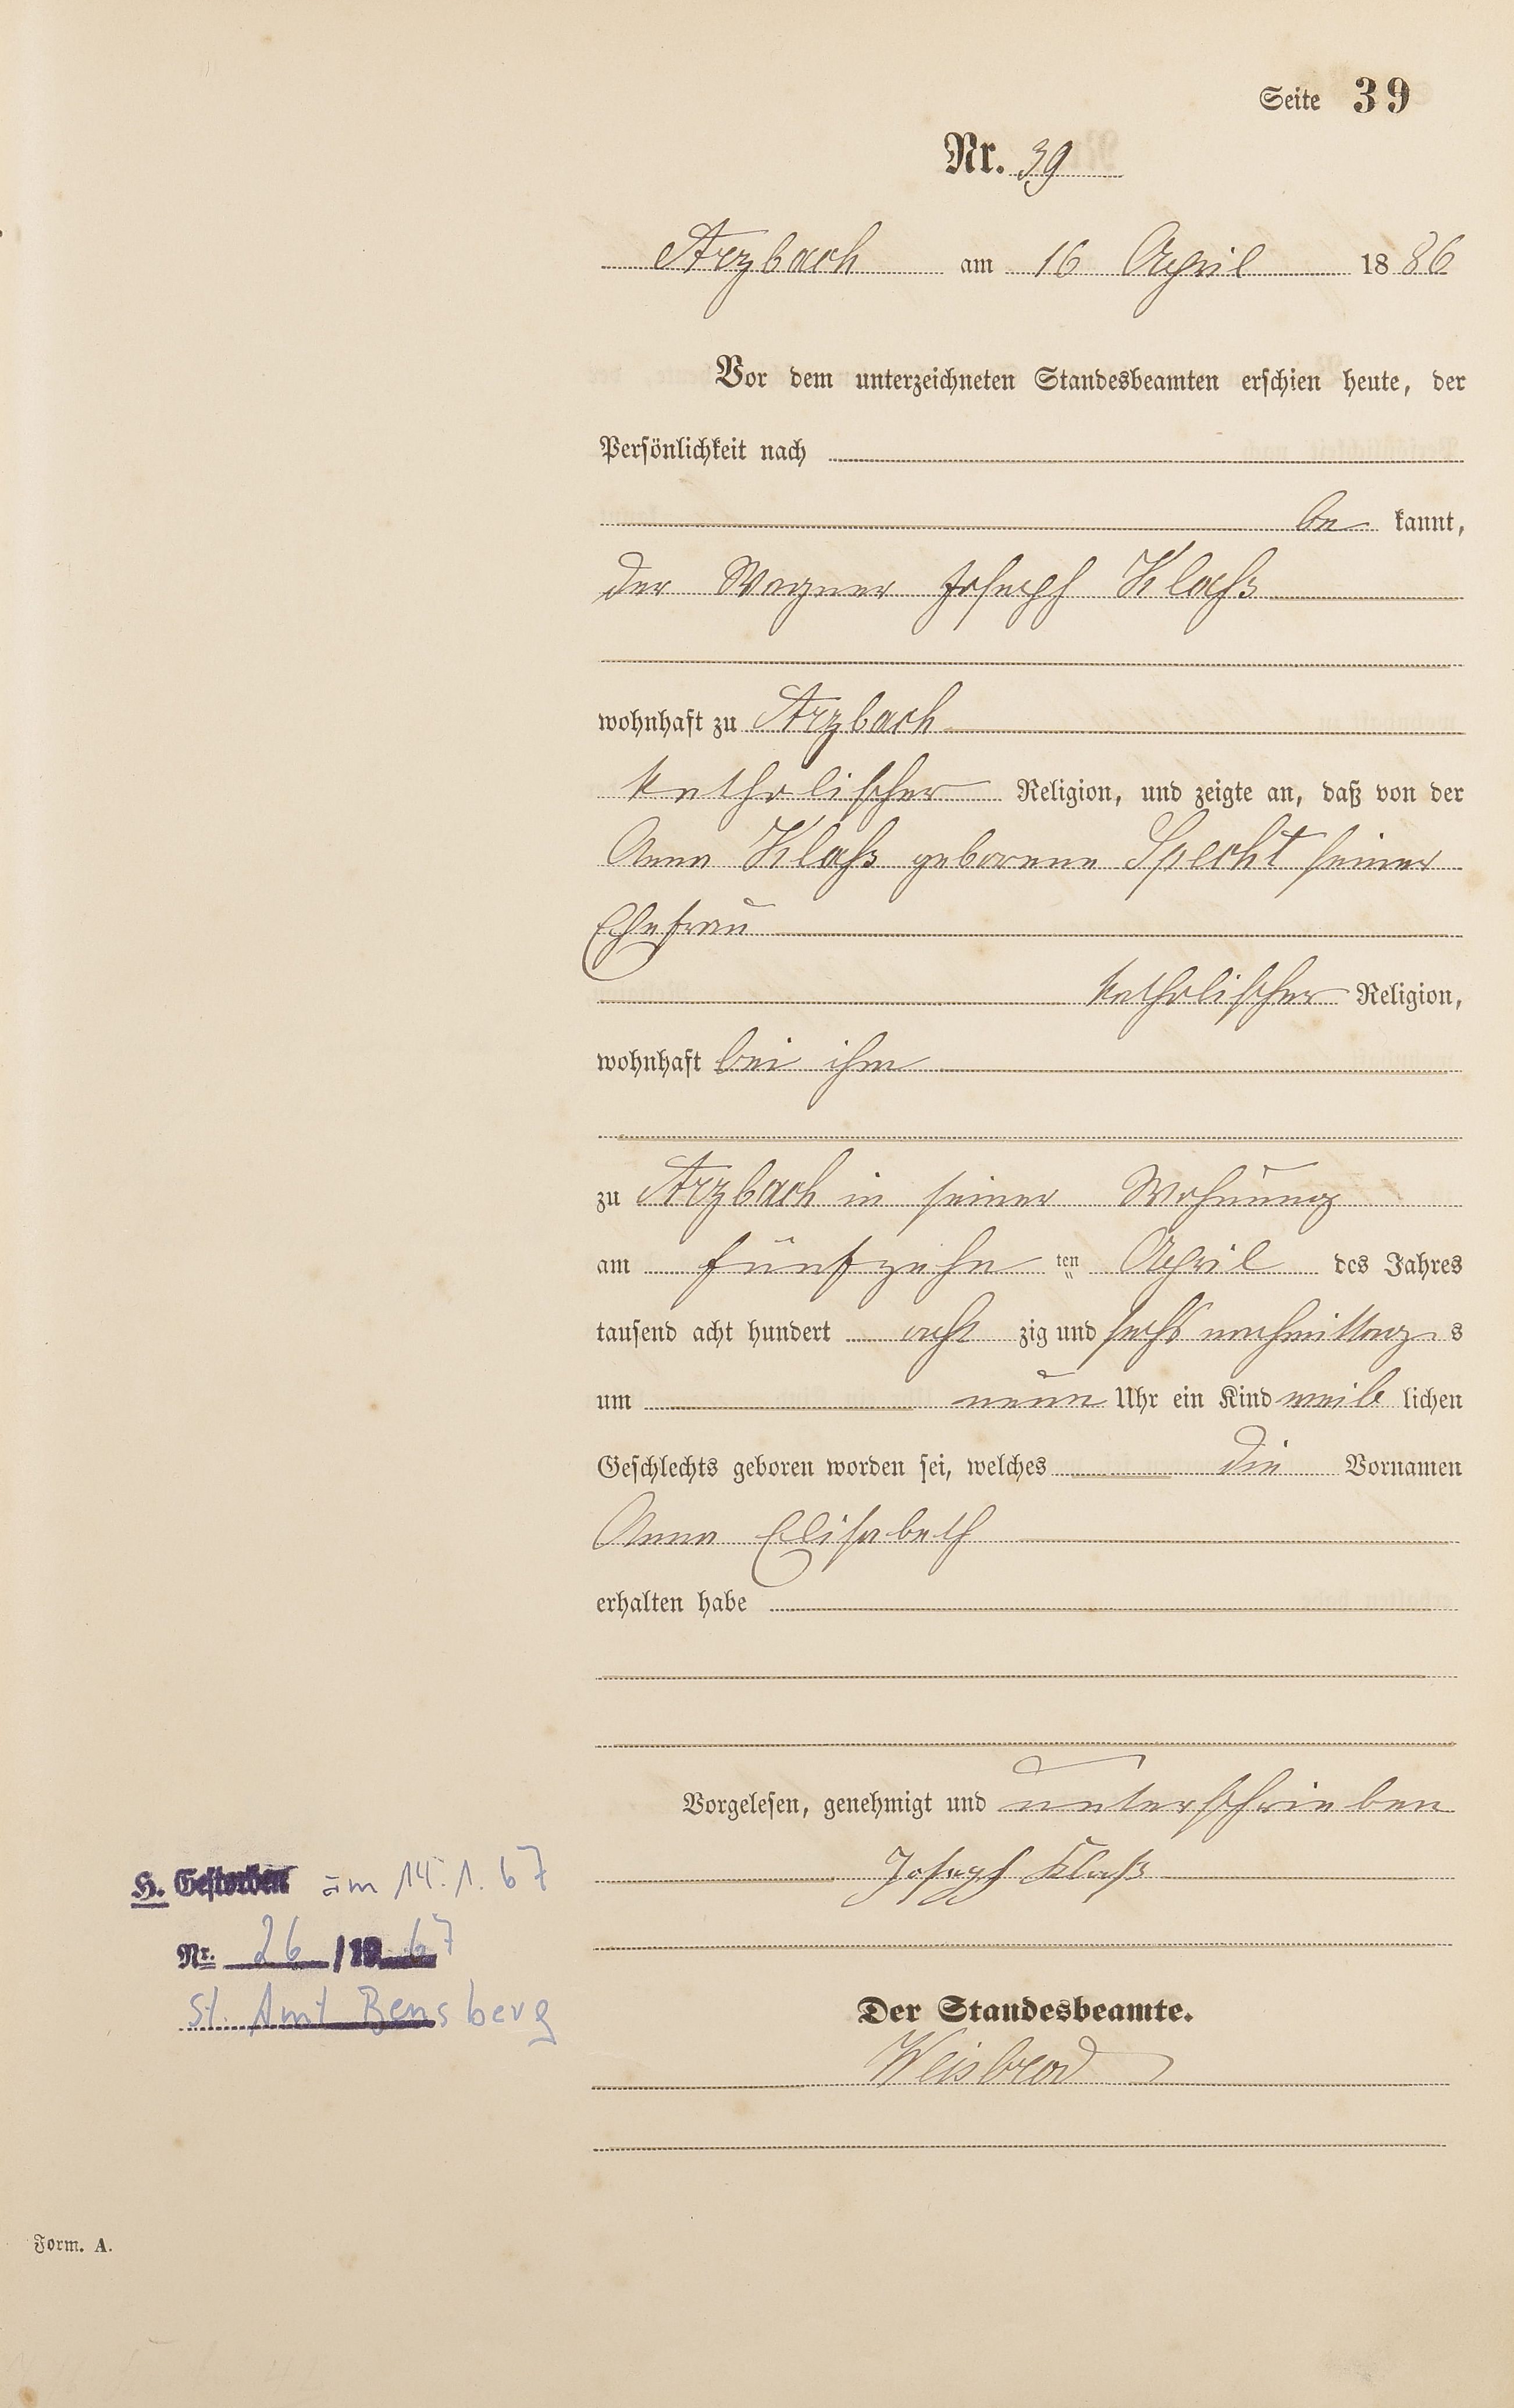 Seite 39
Nr. 39
Arzbach am 16 April 1886
Vor dem unterzeichneten Standesbeamten erschien heute, der
Persönlichkeit nach
be kannt,
der Wagner Joseph Klaß
wohnhaft zu Arzbach
katholischer Religion, und zeigte an, daß von der
Anna Klaß geborene Specht seiner
Ehefrau
katholischer Religion,
wohnhaft bei ihm
zu Arzbach in seiner Wohnung
am fünfzehn ten April des Jahres
tausend acht hundert acht zig und sechs nachmittag s
um neun Uhr ein Kind weib lichen
Geschlechts geboren worden sei, welches die Vornamen
Anna Elisabeth
erhalten habe
Vorgelesen, genehmigt und unterschrieben
Joseph Klaß
H. Gestorben am 14.1.67
Nr. 26/1967
St. Amt Bensberg
Der Standesbeamte.
Weisbrod
Form. A.